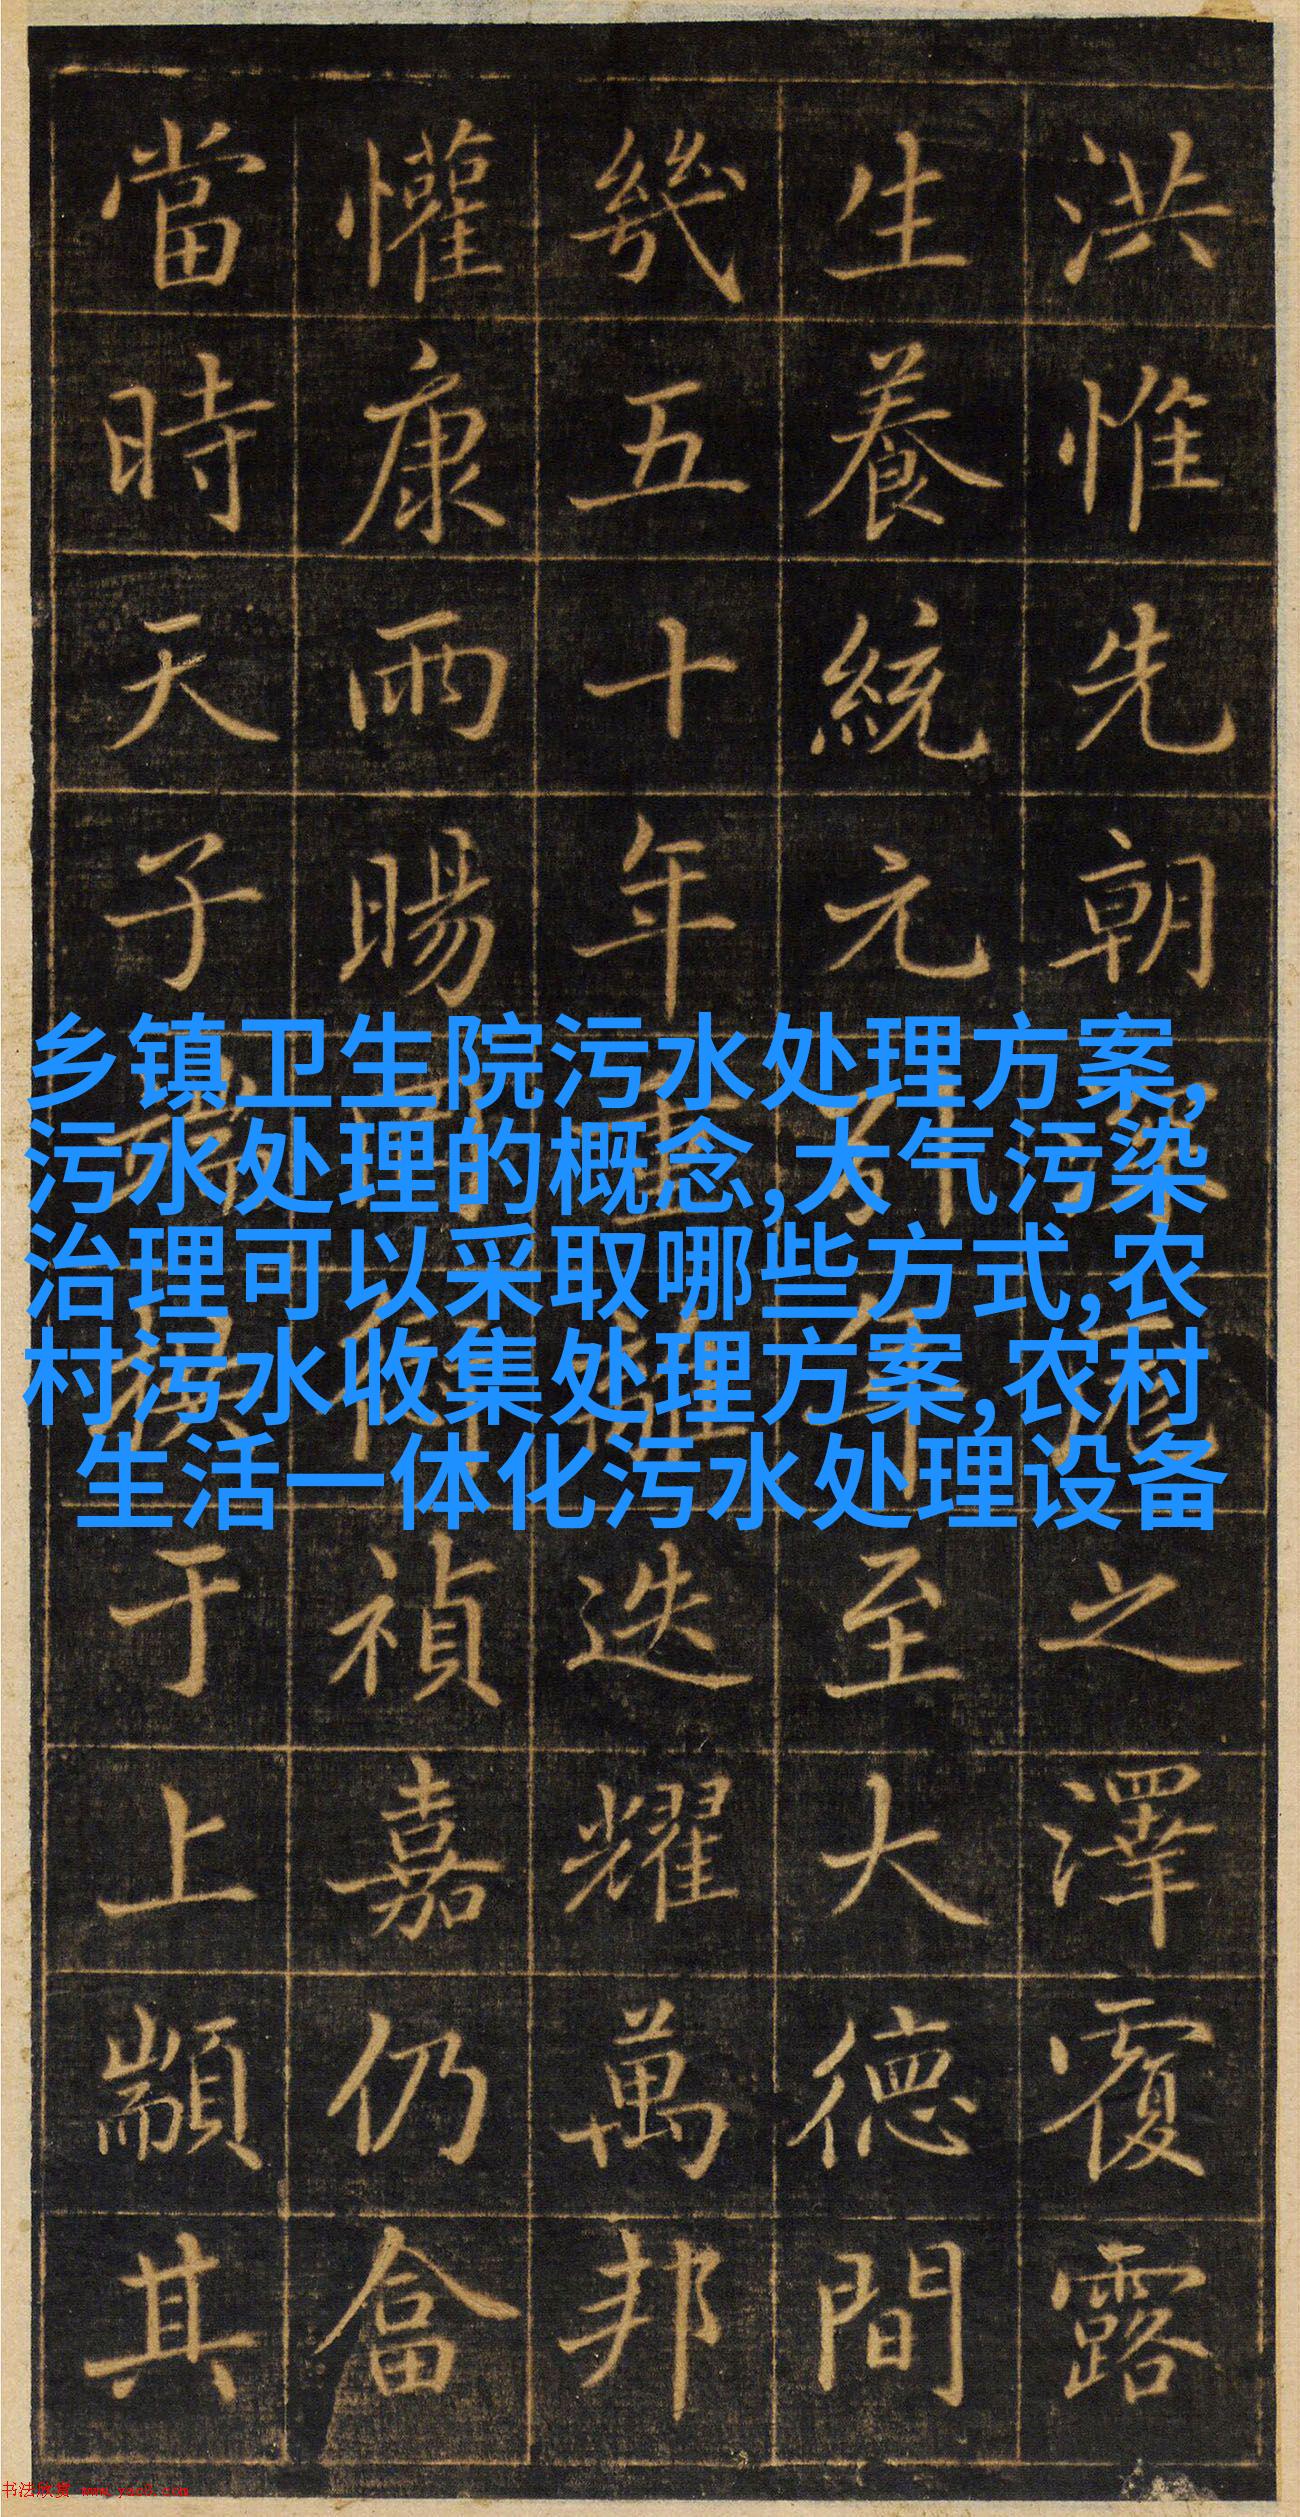 洪惟先朝之澤覆露
生養統元至大德間
幾五十年重離迭耀萬邦
懽康雨暘禎嘉仍畣
當時天子于上顒其
乡镇卫生院污水处理方案,
污水处理的概念,大气污染
治理可以采取哪些方式,农
村污水收集处理方案,农村
生活一体化污水处理设备
书法欣赏 www.yac8.com